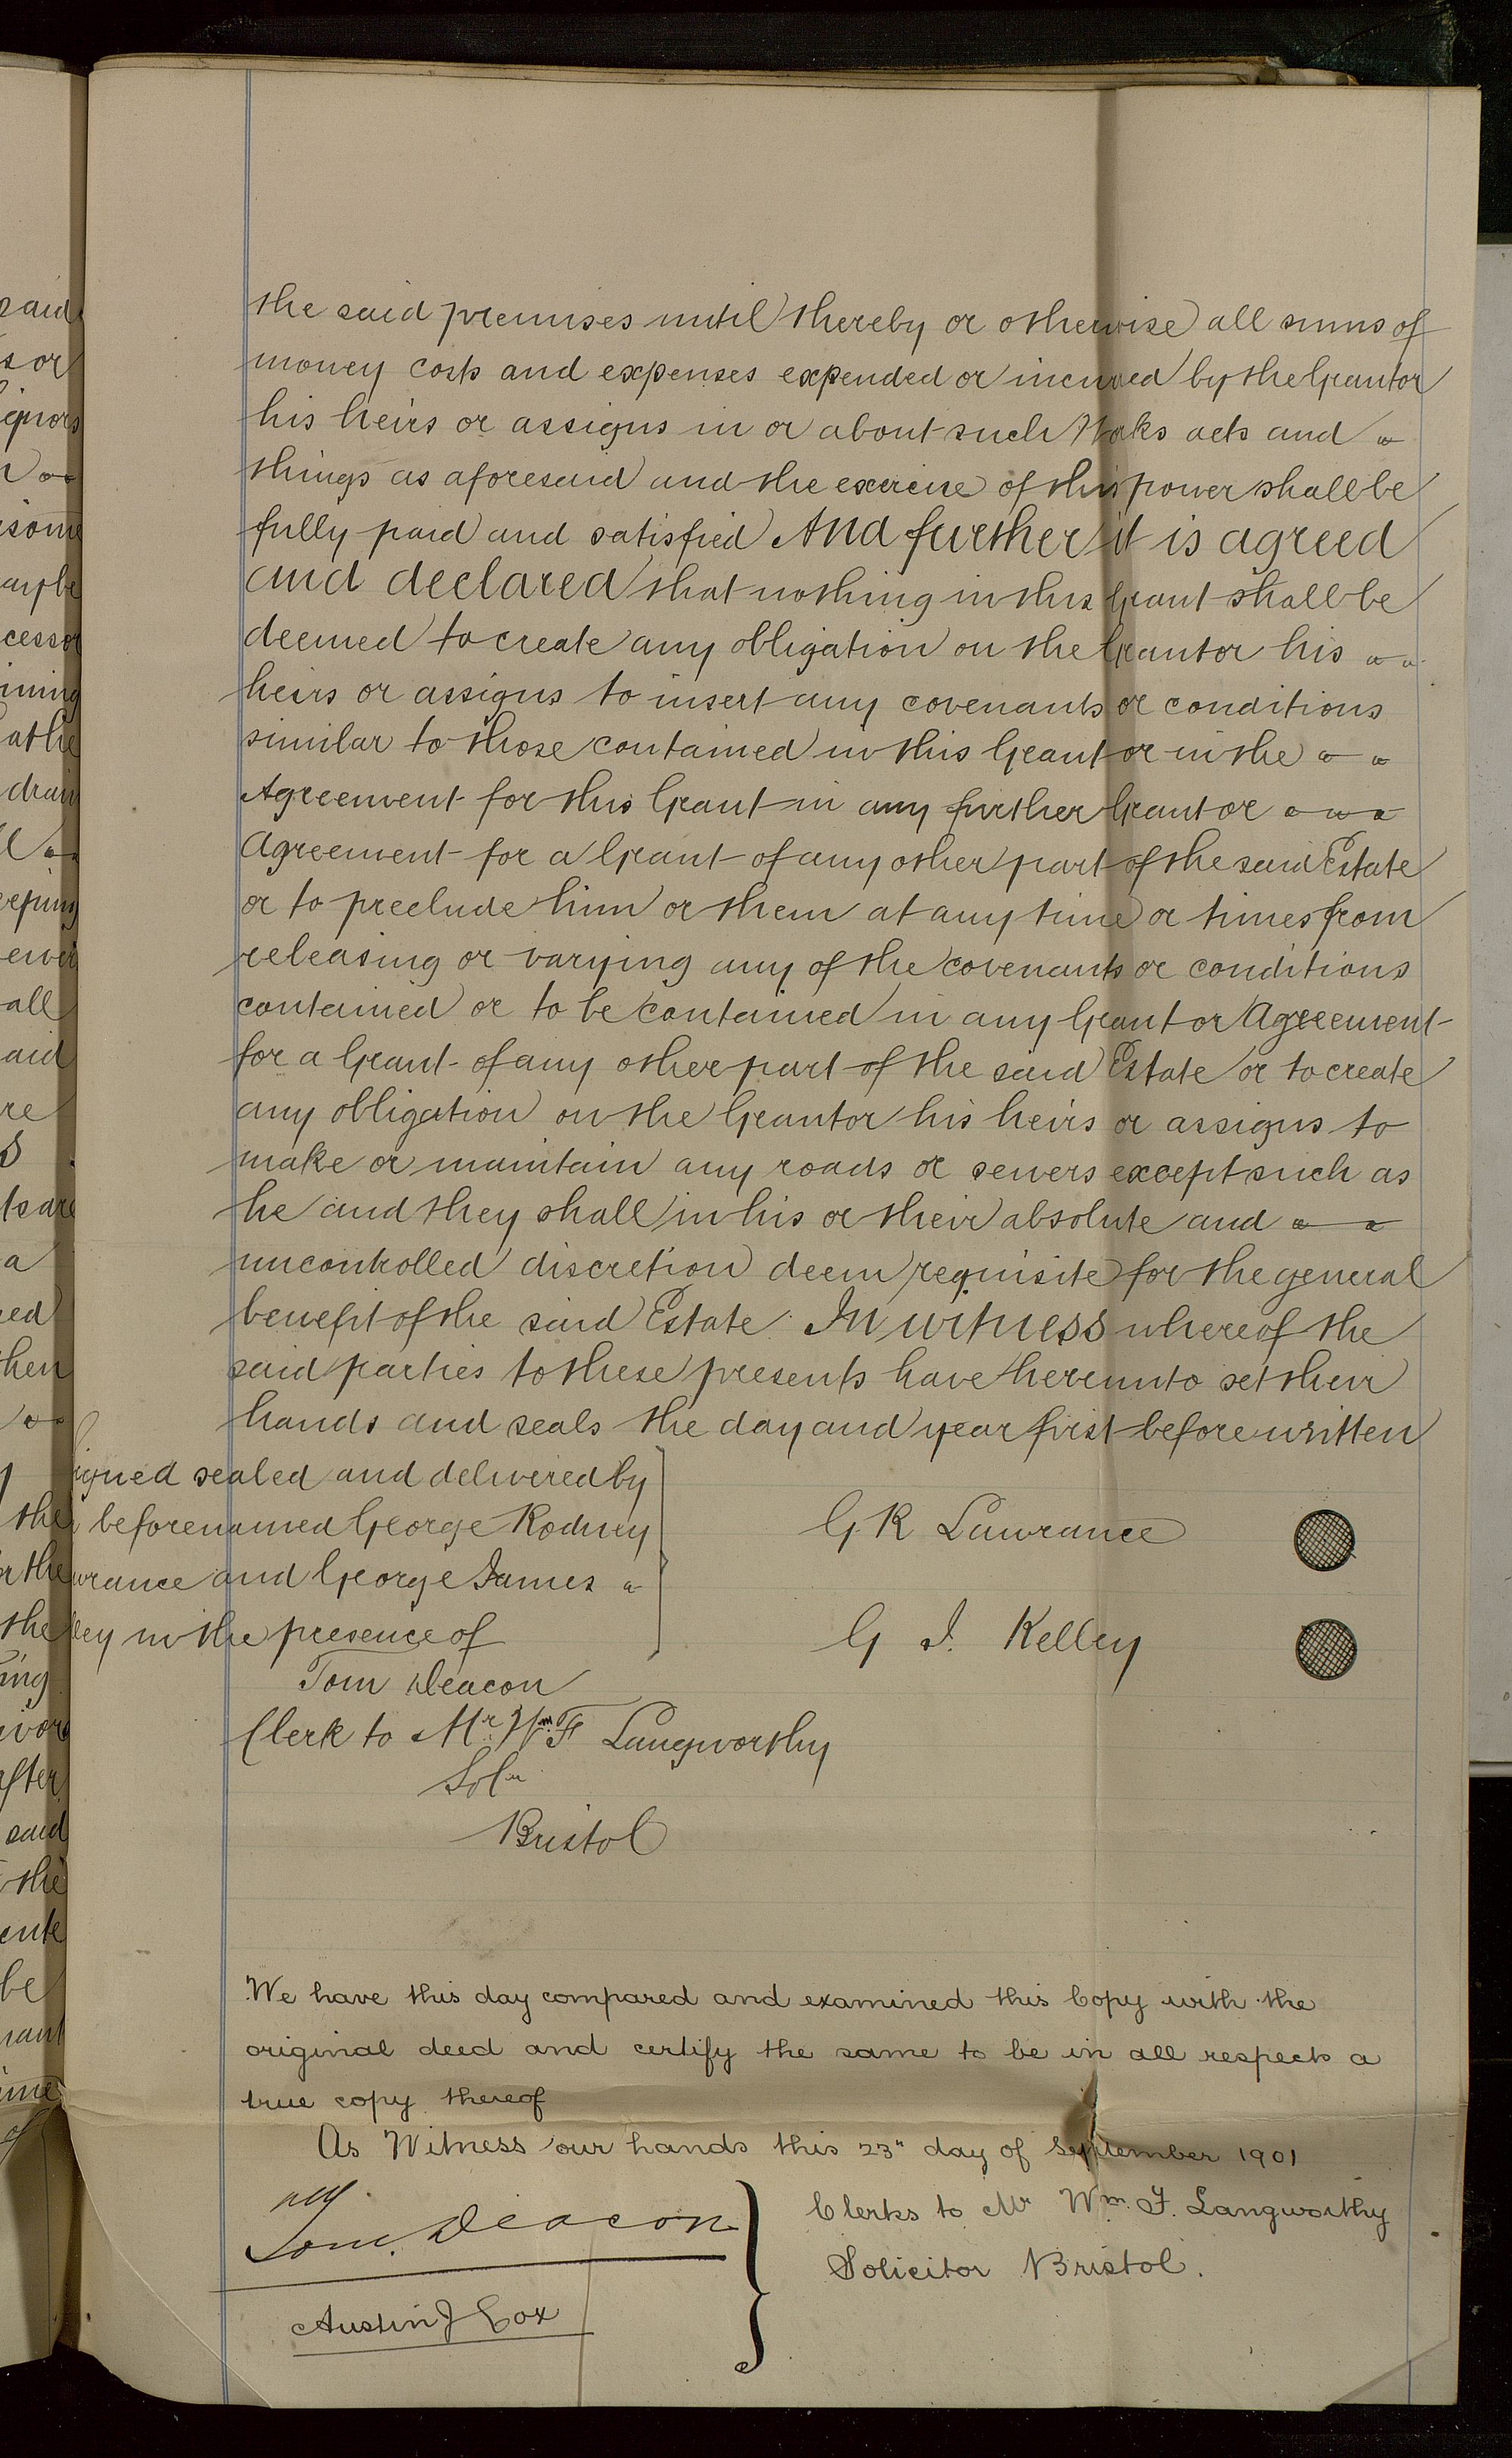 the said premises until thereby or otherwise all sums of
money costs and expenses expended or incurred by the Grantor
his heirs or assigns in or about such Works acts and
things as aforesaid and the exercise of this power shall be
fully paid and satisfied And further it is agreed
and declared that nothing in this Grant shall be
deemed to create any obligation on the Grantor his
heirs or assigns to insert any covenants or conditions
similar to those contained in this Grant or in the
Agreement for this Grant in any further Grant or
Agreement for a Grant of any other part of the said Estate
or to preclude him or them at any time or times from
releasing or varying any of the covenants or conditions
contained or to be contained in any Grant or Agreement
for a Grant of any other part of the said Estate or to create
any obligation on the Grantor his heirs or assigns to
make or maintain any roads or sewers except such as
he and they shall in his or their absolute and
uncontrolled discretion deem requisite for the general
benefit of the said Estate In witness whereof the
said parties to these presents have hereunto set their
hands and seals the day and year first before written
igned sealed and delivered by
beforenamed George Rodney
wrance and George James
ley in the presence of
G. R Lawrance
G J. Kelley
Tom Deacon
Clerk to Mr Wm. F Langworthy
Solr
Bristol
We have this day compared and examined this Copy with the
original deed and certify the same to be in all respects a
true copy thereof
As Witness our hands this 23" day of September 1901
Tom. Deacon
Austin J Cox
Clerks to Mr Wm. F. Langworthy
Solicitor Bristol.